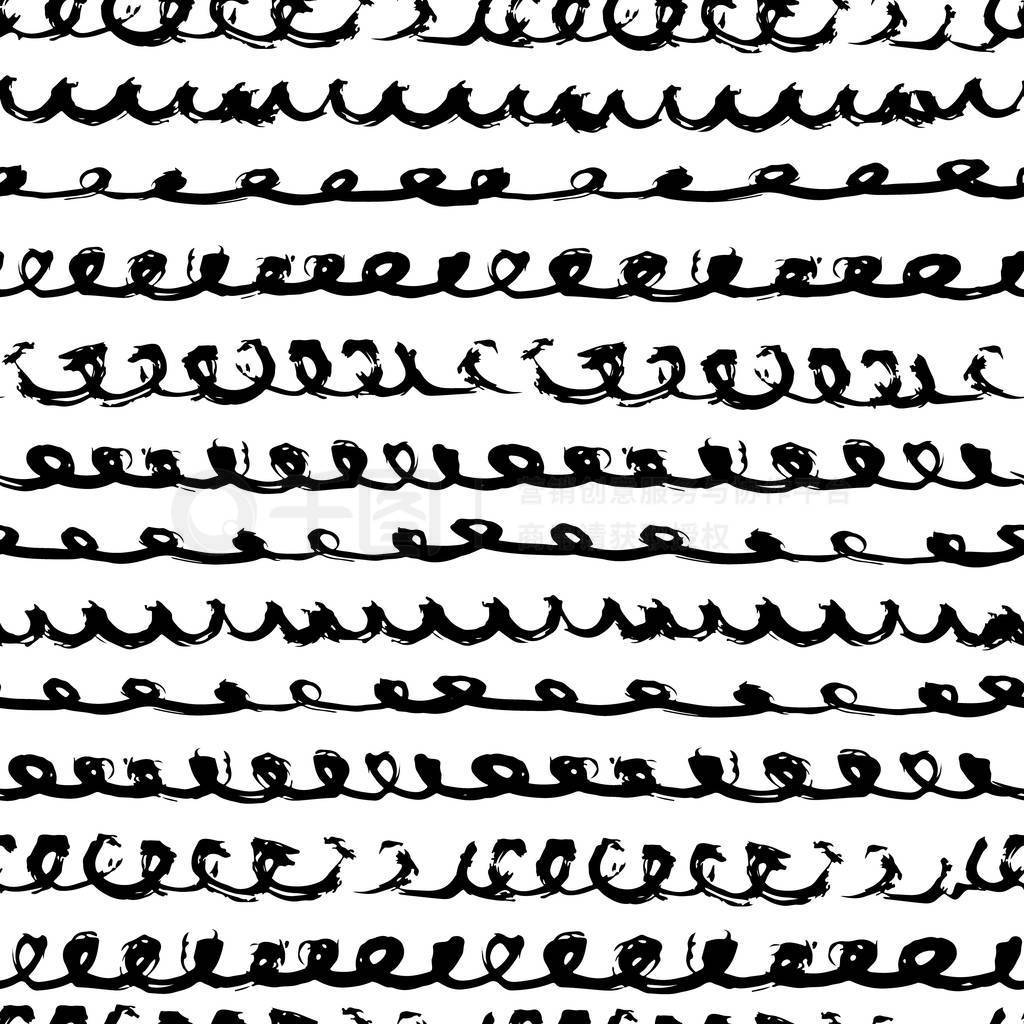 千图
营销创意服务与协作平台
商用请获取授权